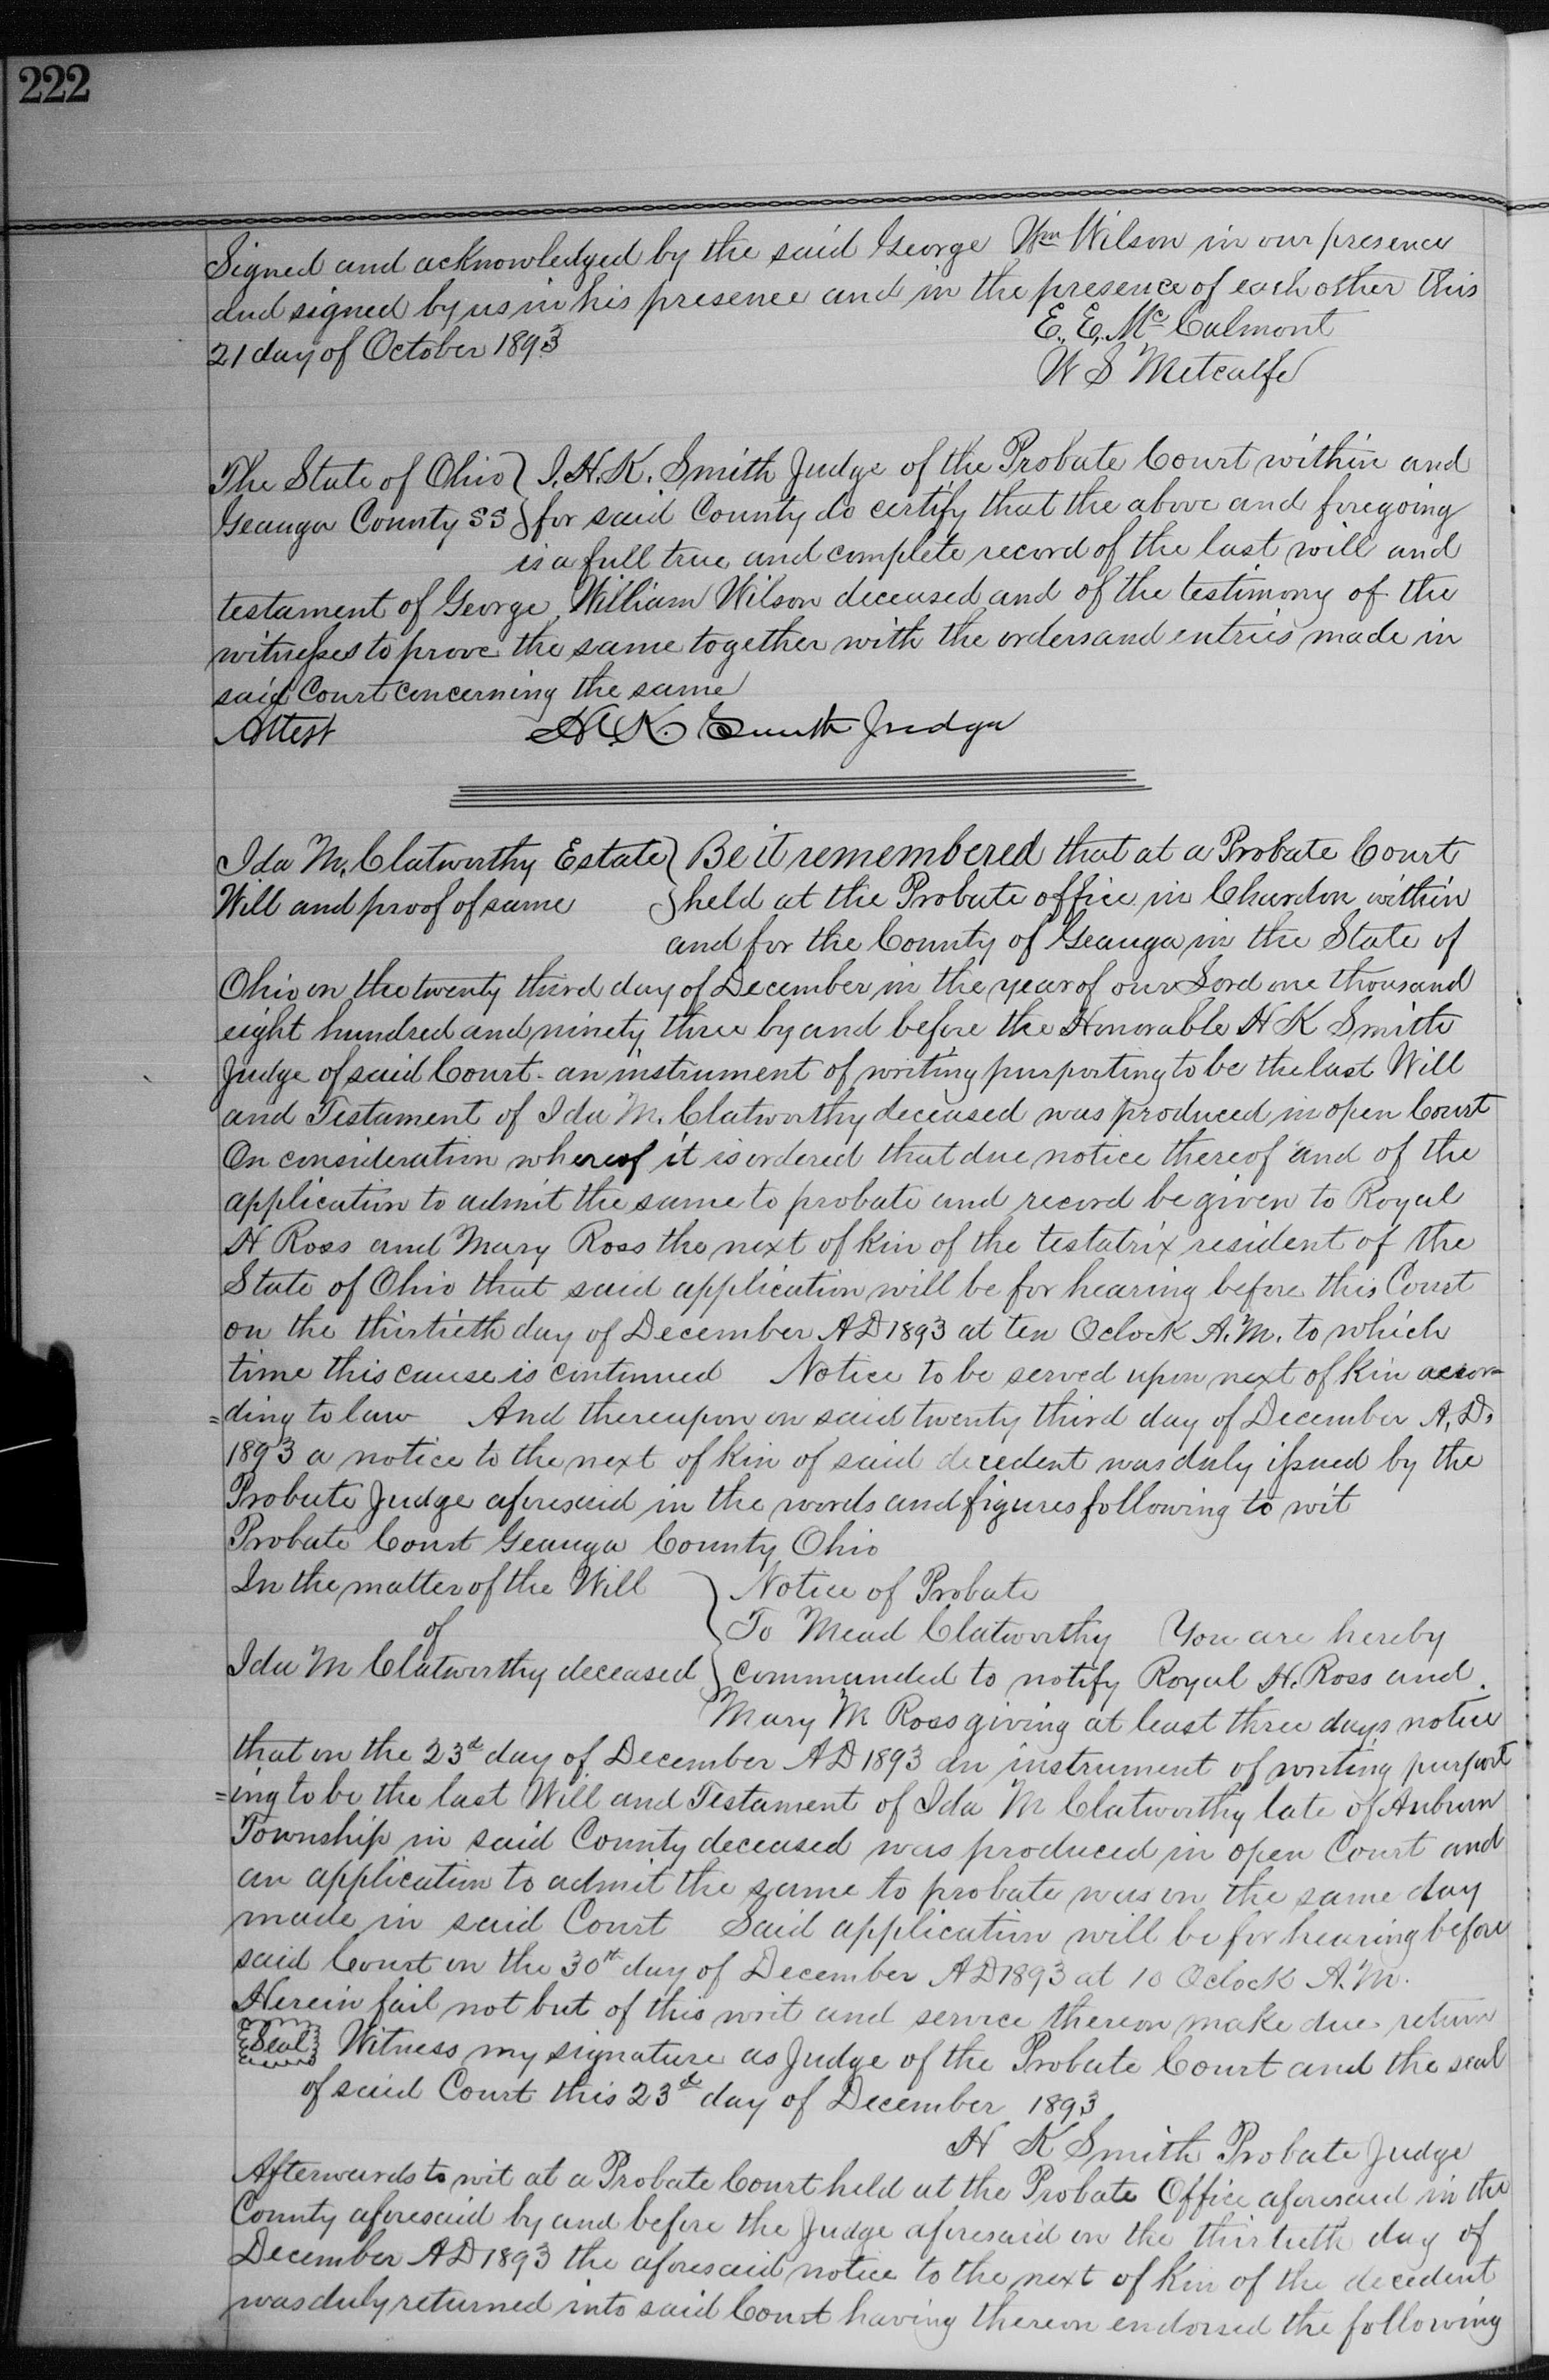 222
Signed and acknowledged by the said George Wm Wilson in our presence
and signed by us in his presence and in the presence of each other this
21 day of October 1893
E. E. Mc Calmont
W S Metcalfe
The State of Ohio } I, H. K. Smith Judge of the Probate Court within and
Geauga County SS } for said County do certify that the above and foregoing
is a full true and complete record of the last will and
testament of George William Wilson deceased and of the testimony of the
witnesses to prove the same together with the orders and entries made in
said Court concerning the same
Attest H. K. Smith Judge
Ida M. Clatworthy Estate } Be it remembered that at a Probate Court
Will and proof of same } held at the Probate office in Chardon within
and for the County of Geauga in the State of
Ohio on the twenty third day of December in the year of our Lord one thousand
eight hundred and ninety three by and before the Honorable H K Smith
Judge of said Court - an instrument of writing purporting to be the last Will
and Testament of Ida M. Clatworthy deceased was produced in open Court
On consideration whereof it is ordered that due notice thereof and of the
application to admit the same to probate and record be given to Royal
H Ross and Mary Ross the next of kin of the testatrix resident of the
State of Ohio that said application will be for hearing before this Court
on the thirtieth day of December AD 1893 at ten Oclock A.M. to which
time this cause is continued Notice to be served upon next of kin accor-
=ding to law And thereupon on said twenty third day of December A.D.
1893 a notice to the next of kin of said decedent was duly issued by the
Probate Judge aforesaid in the words and figures following to wit
Probate Court Geauga County Ohio
In the matter of the Will } Notice of Probate
of } To Mead Clatworthy You are hereby
Ida M Clatworthy deceased } commanded to notify Royal H. Ross and
Mary M Ross giving at least three days notice
that on the 23d day of December AD 1893 an instrument of writing purport
=ing to be the last Will and Testament of Ida M Clatworthy late of Auburn
Township in said County deceased was produced in open Court and
an application to admit the same to probate was on the same day
made in said Court Said application will be for hearing before
said Court on the 30th day of December AD 1893 at 10 Oclock A.M.
Herein fail not but of this writ and service thereon make due return
Seal Witness my signature as Judge of the Probate Court and the seal
of said Court this 23d day of December 1893
H K Smith Probate Judge
Afterwards to wit at a Probate Court held at the Probate Office aforesaid in the
County aforesaid by and before the Judge aforesaid on the thirtieth day of
December AD 1893 the aforesaid notice to the next of kin of the decedent
was duly returned into said Court having thereon endorsed the following